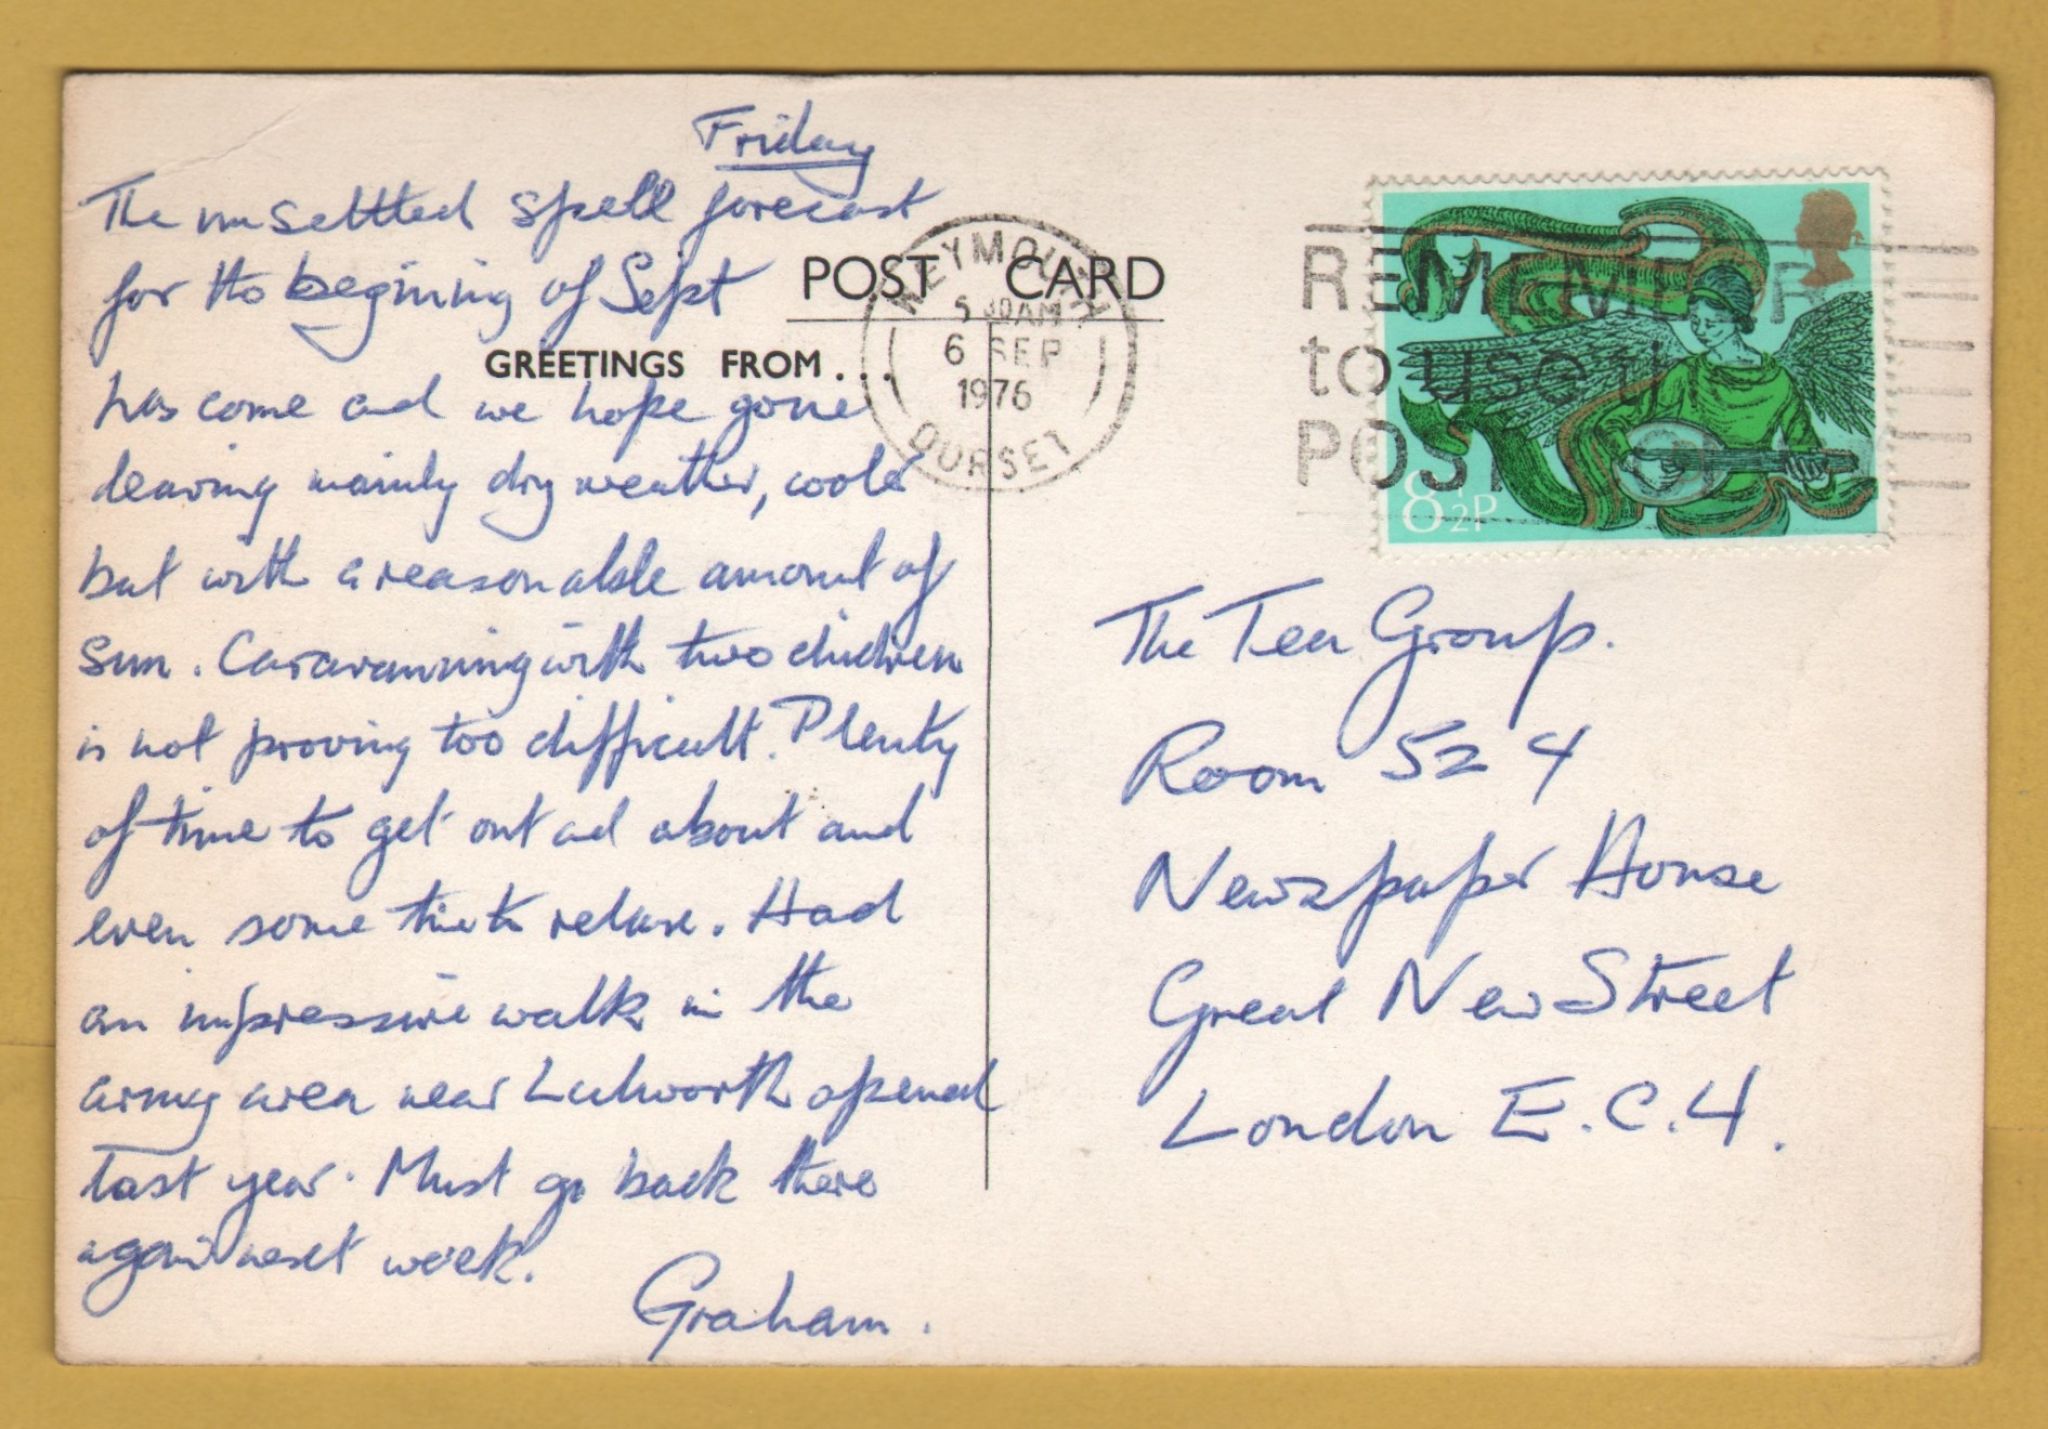 Friday
The unsettled spell forecast
for the begining of Sept
POST CARD
GREETINGS FROM . . .
has come and we hope gone
leaving mainly dry weather, cooler
but with a reasonable amount of
sun. Caravanning with two children
is not proving too difficult. Plenty
of time to get out and about and
even some time to relax. Had
an impressive walk in the
army area near Lulworth opened
last year. Must go back there
again next week.
Graham.
WEYMOUTH
5 30AM
6 SEP
1976
DORSET
REMEMBER
to use
POST
8½P
The Tea Group.
Room 524
Newspaper House
Great New Street
London E.C.4.